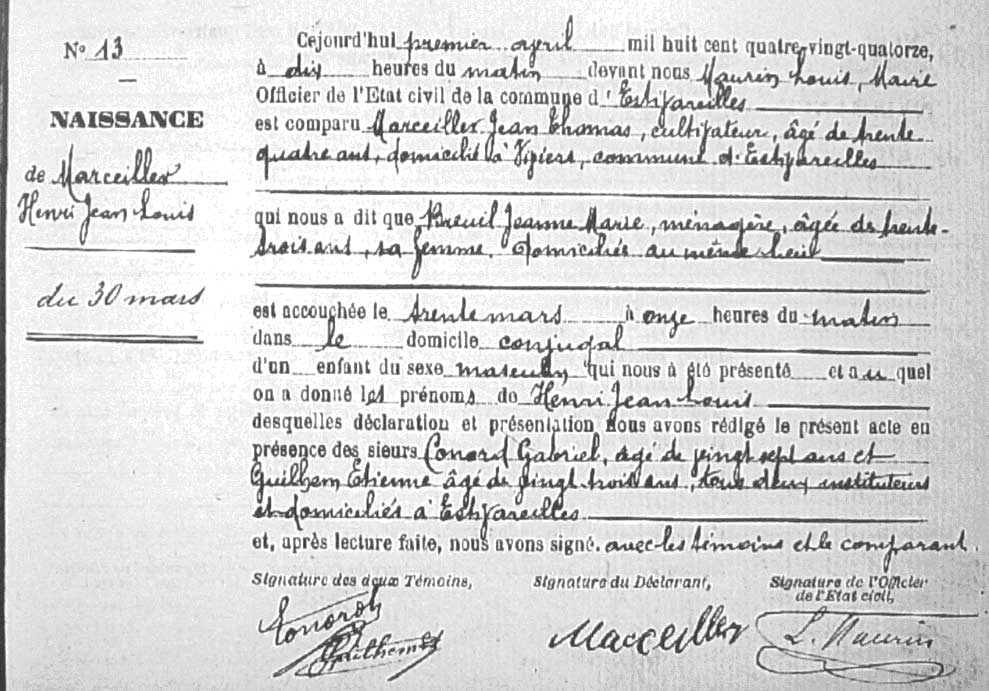 N° 13
NAISSANCE
de Marceiller
Henri Jean Louis
du 30 mars
Cejourd'hui premier avril mil huit cent quatre-vingt-quatorze,
à dix heures du matin devant nous Maurin Louis, Maire
Officier de l'Etat civil de la commune d'Estivareilles
est comparu Marceiller Jean Thomas, cultivateur, âgé de trente
quatre ans, domicilié à Viviers, commune d'Estivareilles
qui nous a dit que Breuil Jeanne Marie, ménagère, âgée de trente-
trois ans, sa femme, domiciliée au même lieu
est accouchée le trente mars à onze heures du matin
dans le domicile conjugal
d'un enfant du sexe masculin qui nous a été présenté et au quel
on a donné les prénoms de Henri Jean Louis
desquelles déclaration et présentation Nous avons rédigé le présent acte en
présence des sieurs Conord Gabriel, âgé de vingt sept ans et
Guilhem Etienne âgé de vingt-trois ans, tous deux instituteurs
et domiciliés à Estivareilles
et, après lecture faite, nous avons signé. avec les témoins et le comparant.
Signature des deux Témoins, Signature du Déclarant, Signature de l'Officier
de l'Etat civil,
Conord Marceiller L. Maurin
Guilhem